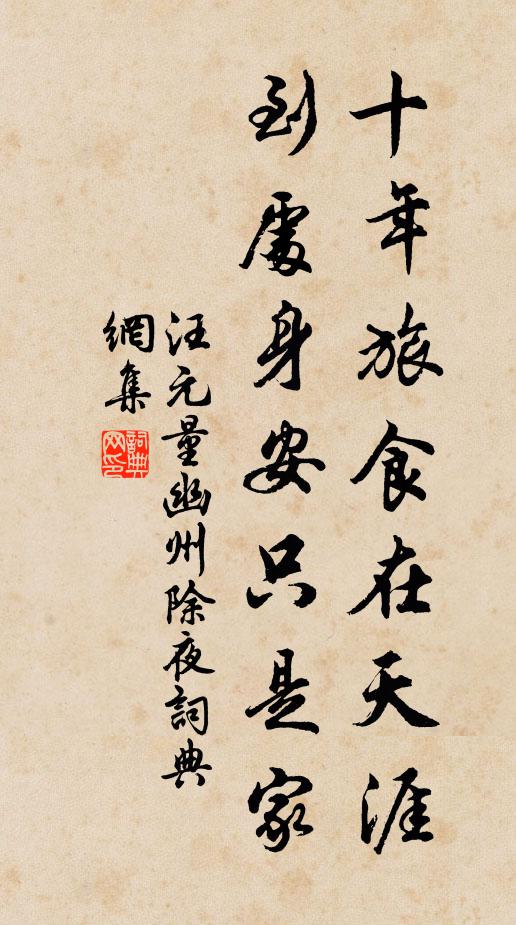 十年旅食在天涯
到處身安只是家
汪元量幽州除夜詞典
網集
詞典
网印